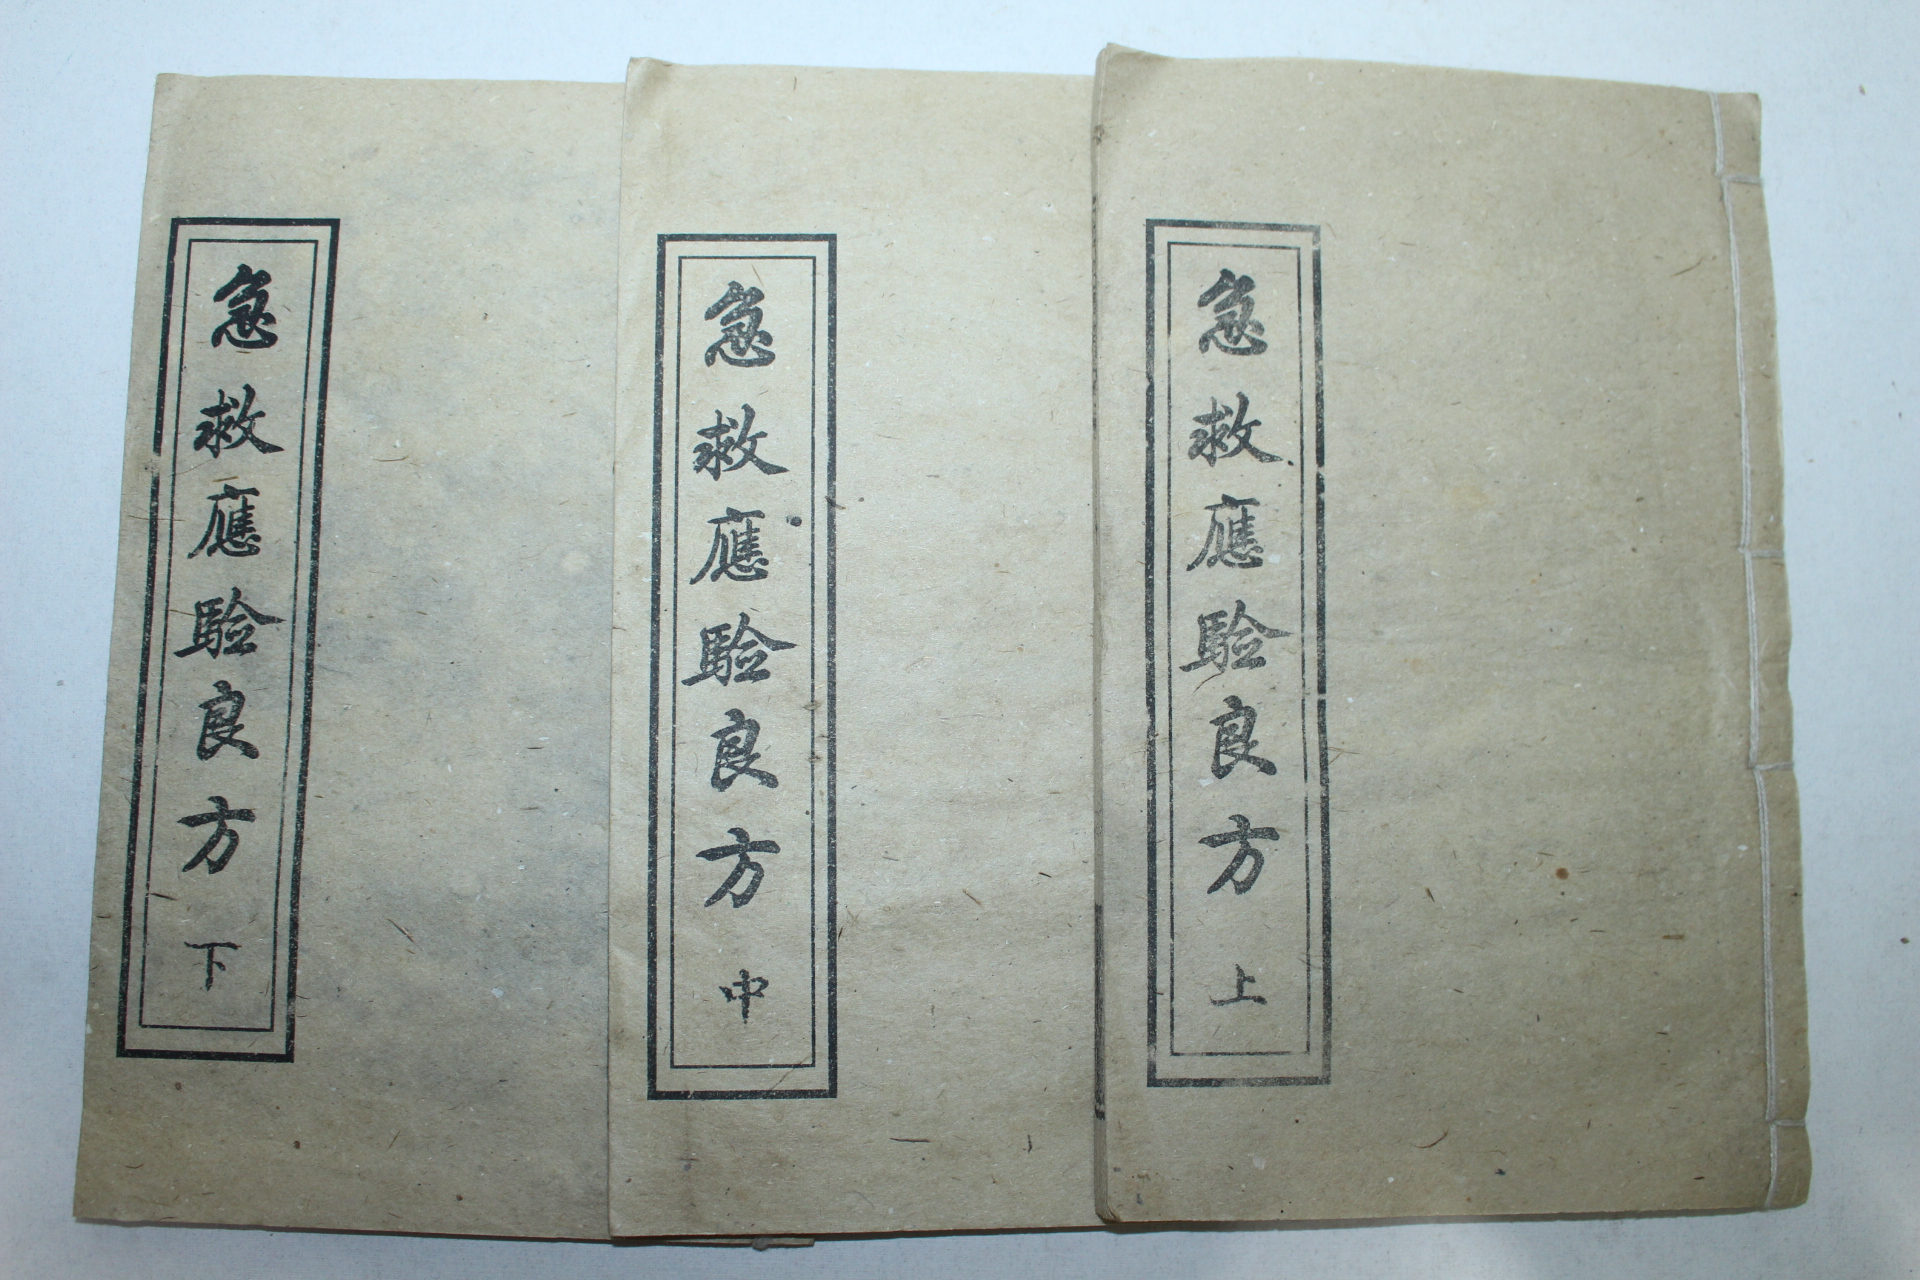 急救應驗良方 上
急救應驗良方 中
急救應驗良方 下